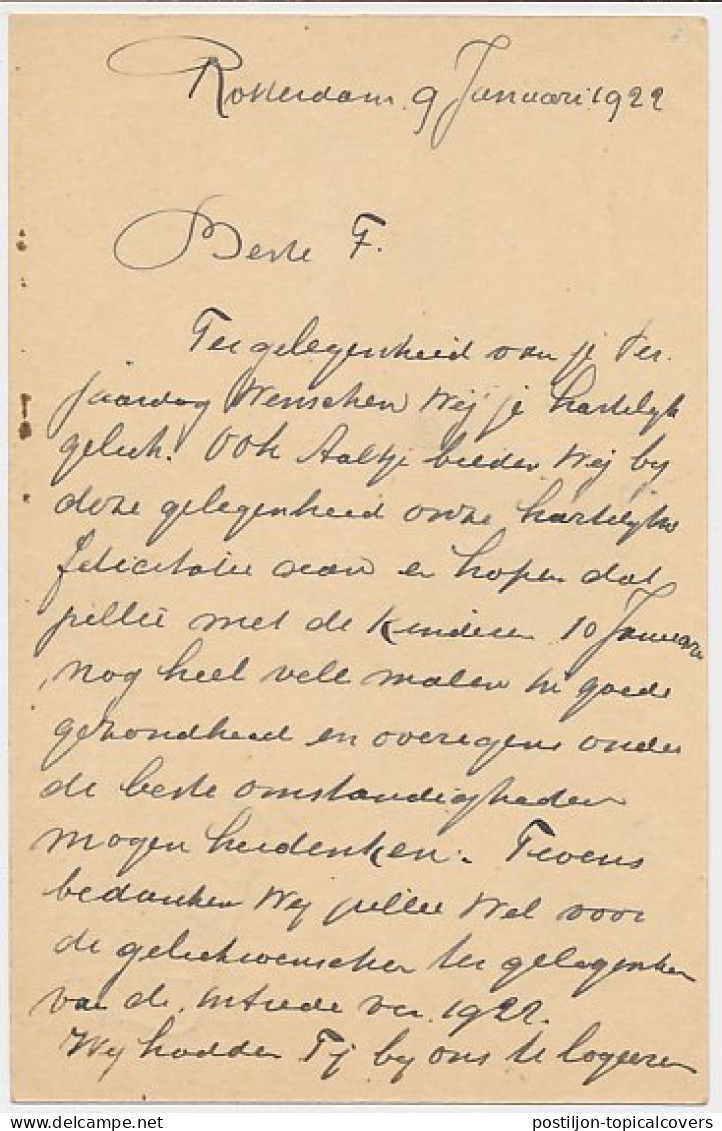 Rotterdam 9 Januari 1922
Beste F.
Ter gelegenheid van je Ver-
jaardag Wenschen Wij je hartelijk
geluk. Ook Aaltje bieden Wij bij
deze gelegenheid onze hartelijke
felicitatie aan en hopen dat
jullie met de Kinderen 10 Januari
nog heel vele malen in goede
gezondheid en overigens onder
de beste omstandigheden
mogen herdenken. Tevens
bedanken Wij jullie Wel voor
de gelukwenschen ter gelegenheid
van de intrede van 1922.
Wij hadden Tij bij ons te logeeren
postiljon-topicalcovers